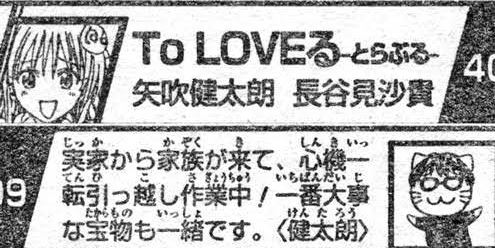 To LOVEる-とらぶる-
40
矢吹健太朗 長谷見沙貴
じっか かぞく き しんきいっ
実家から家族が来て、心機一
てんひ こ さぎょうちゅう いちばんだいじ
転引っ越し作業中！一番大事
たからもの いっしょ けんたろう
な宝物も一緒です。〈健太朗〉